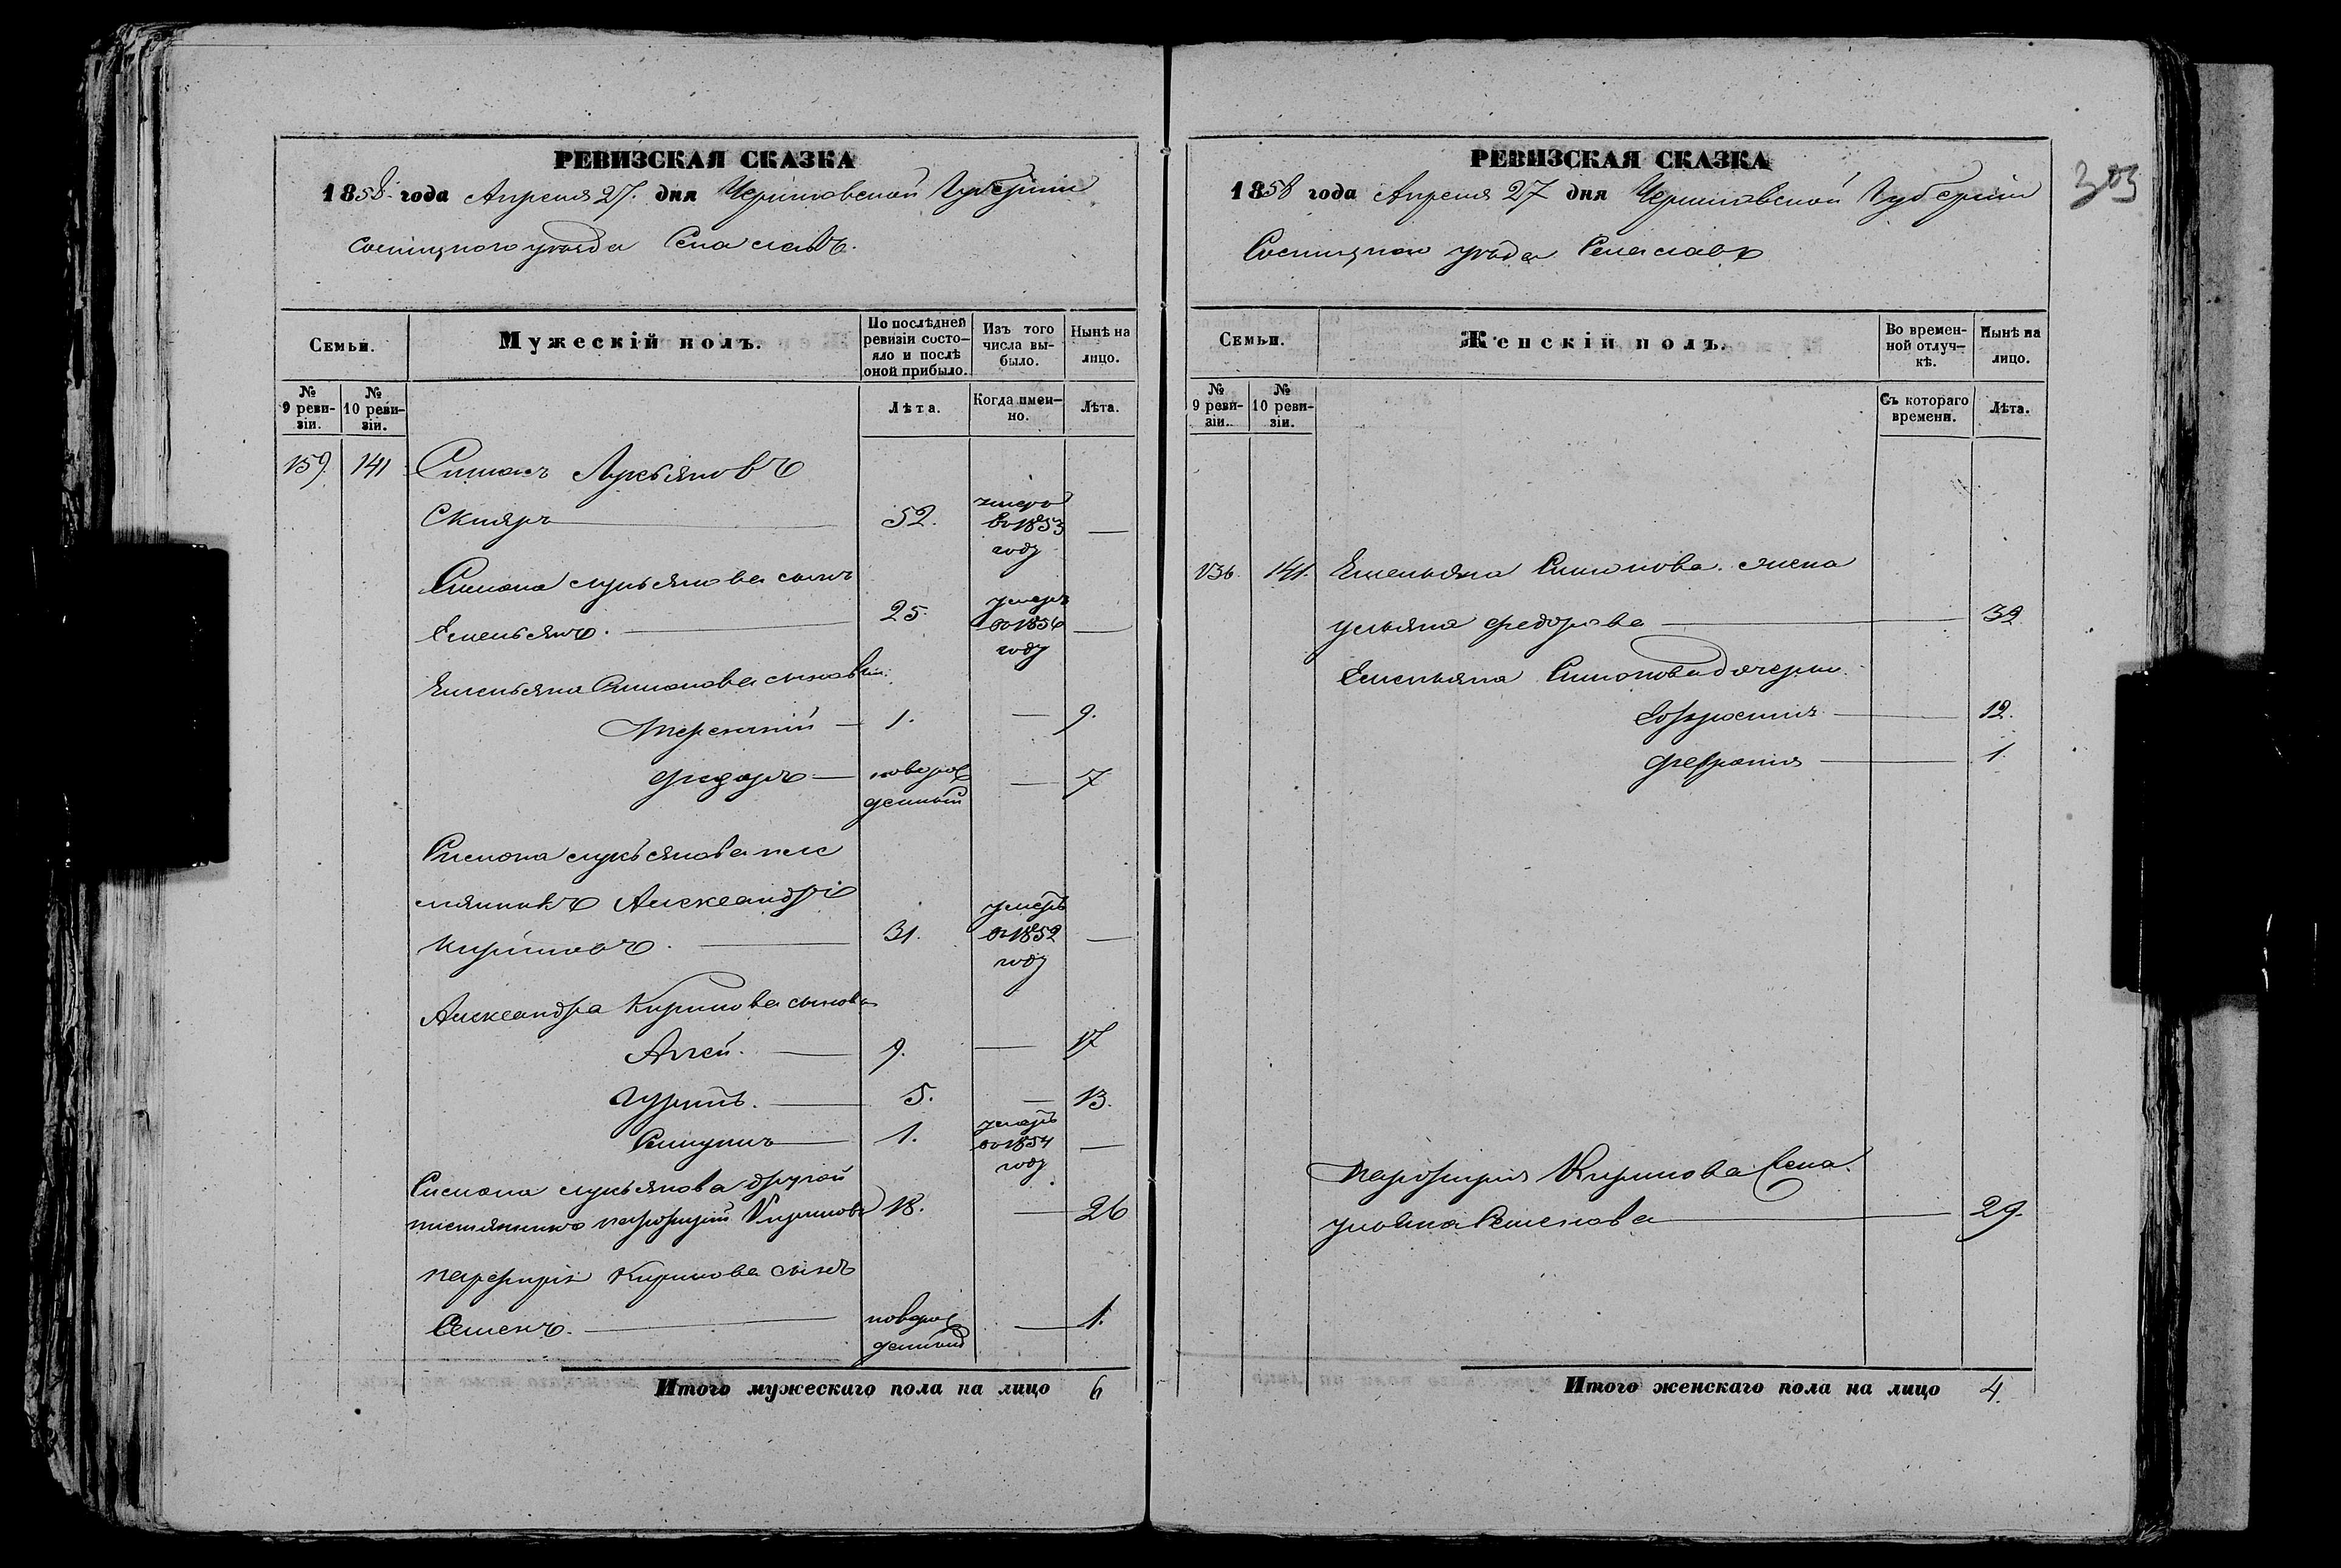 РЕВИЗСКАЯ СКАЗКА
1858. года Апреля 27. дня Черниговской Губернии
Сосницкого уѣзда Села
Семьи.
Мужескій полъ.
По послѣдней ревизіи состояло и послѣ оной прибыло.
Изъ того числа выбыло.
Нынѣ на лицо.
№ 9 ревизіи.
№ 10 ревизіи.
Лѣта.
Когда именно.
Лѣта.
159. 141 Симонъ Лукьяновъ
Скляръ 52. умеръ во 1853 году —
Симона Лукьянова сынъ
Емельянъ. 25. умеръ году —
Емельяна Симонова сыновья
Терентий 1. — 9.
Федоръ новорожденный — 7
Симона Лукьянова пле
мянникъ Александръ
Кириловъ. 31. умеръ 1852 году —
Александра Кирилова сыновья
9. — 17
Гурий. 5. — 13.
1. умеръ во 1854 году —
Симона Лукьянова другой
племянникъ Кириловъ 18. — 26
Кирилова сынъ
Семенъ. новорожденный — 1.
Итого мужескаго пола на лицо 6
РЕВИЗСКАЯ СКАЗКА
1858 года Апреля 27 дня Черниговской Губернии
Сосницкого уѣзда Села
303
Семьи.
Женскій полъ.
Во временной отлучкѣ.
Нынѣ на лицо.
№ 9 ревизіи.
№ 10 ревизіи.
Съ котораго времени.
Лѣта.
141. Емельяна Симонова. жена
Ульяна Федорова 32
Емельяна Симонова дочери
12.
1.
Кирилова жена.
Ульяна Семенова 29.
Итого женскаго пола на лицо 4.